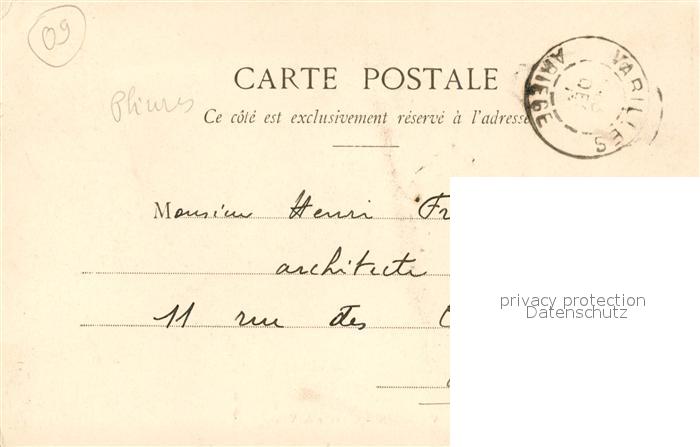 09
CARTE POSTALE
VARILHES
ARIEGE
Pliures
Ce côté est exclusivement réservé à l'adresse
Monsieur Henri Fr
architecte
11 rue des C
privacy protection
Datenschutz